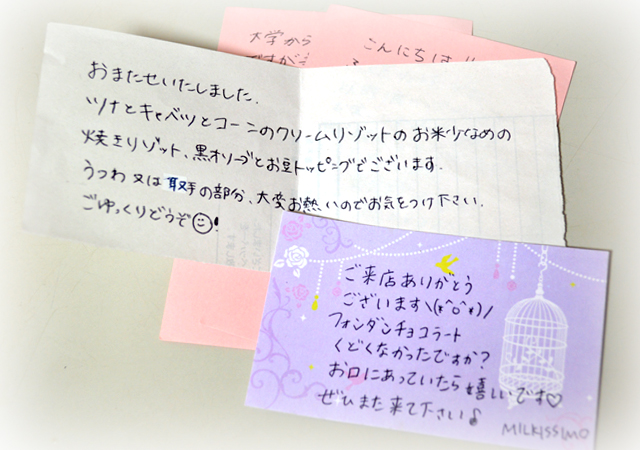 大学から
ですがえ
こんにちは!!
おまたせいたしました.
ツナとキャベツとコーンのクリームリゾットのお米少なめの
焼きリゾット、黒オリーブとお豆トッピングでございます.
うつわ又は取手の部分、大変お熱いのでお気をつけ下さい.
ごゆっくりどうぞ☺!
ご来店ありがとう
ございます\(*^o^*)/
フォンダンチョコラート
くどくなかったですか?
お口にあっていたら嬉しいです♡
ぜひまた来て下さい♪
MILKISSIMO